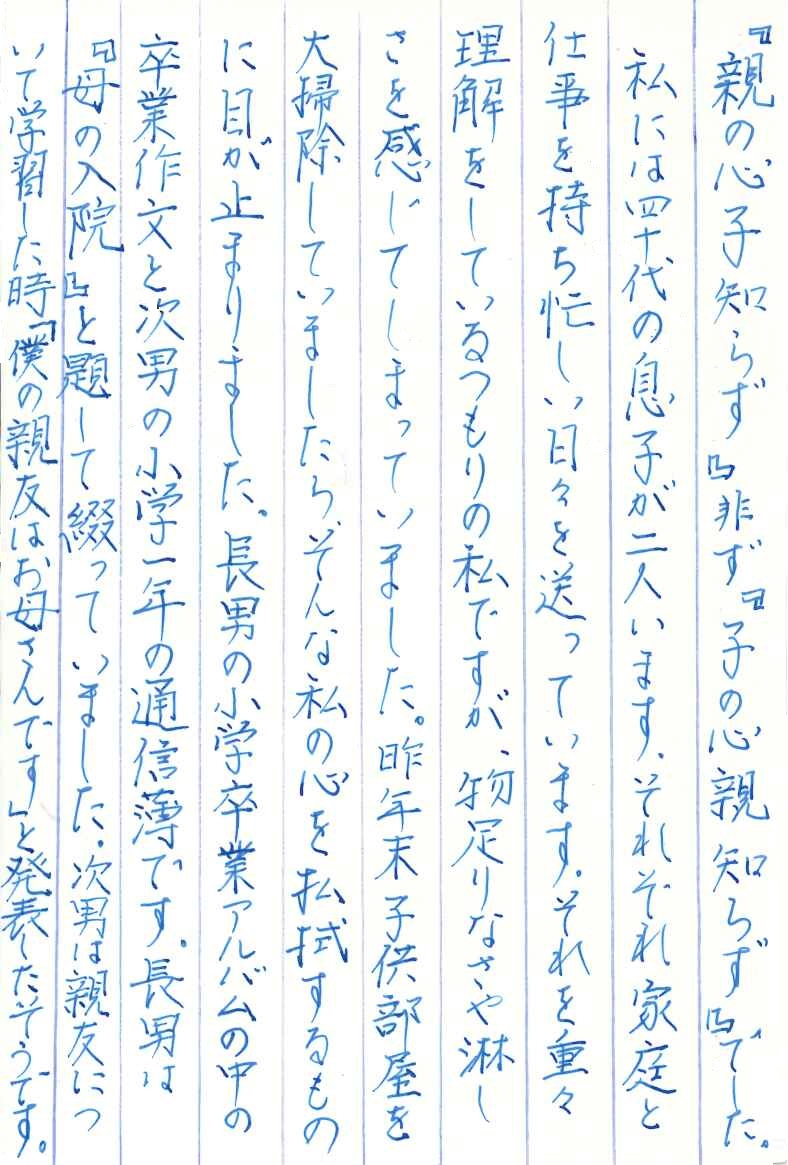 『親の心子知らず』非ず『子の心親知らず』でした。
私には四十代の息子が二人います。それぞれ家庭と
仕事を持ち忙しい日々を送っています。それを重々
理解をしているつもりの私ですが、物足りなさや淋し
さを感じてしまっていました。昨年末子供部屋を
大掃除していましたらそんな私の心を払拭するもの
に目が止まりました。長男の小学卒業アルバムの中の
卒業作文と次男の小学一年の通信薄です。長男は
『母の入院』と題して綴っていました。次男は親友につ
いて学習した時「僕の親友はお母さんです」と発表したそうです。